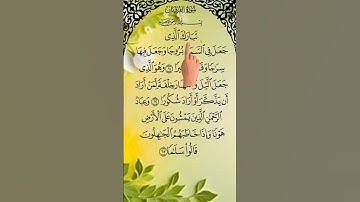 سُورَةُ الفُرْقَان
تَبَارَكَ الَّذِي
جَعَلَ فِي السَّمَاءِ بُرُوجًا وَجَعَلَ فِيهَا
سِرَاجًا وَقَمَرًا مُّنِيرًا ٦١ وَهُوَ الَّذِي
جَعَلَ اللَّيْلَ وَالنَّهَارَ خِلْفَةً لِّمَنْ أَرَادَ
أَن يَذَّكَّرَ أَوْ أَرَادَ شُكُورًا ٦٢ وَعِبَادُ
الرَّحْمَٰنِ الَّذِينَ يَمْشُونَ عَلَى الْأَرْضِ
هَوْنًا وَإِذَا خَاطَبَهُمُ الْجَاهِلُونَ
قَالُوا سَلَامًا ٦٣